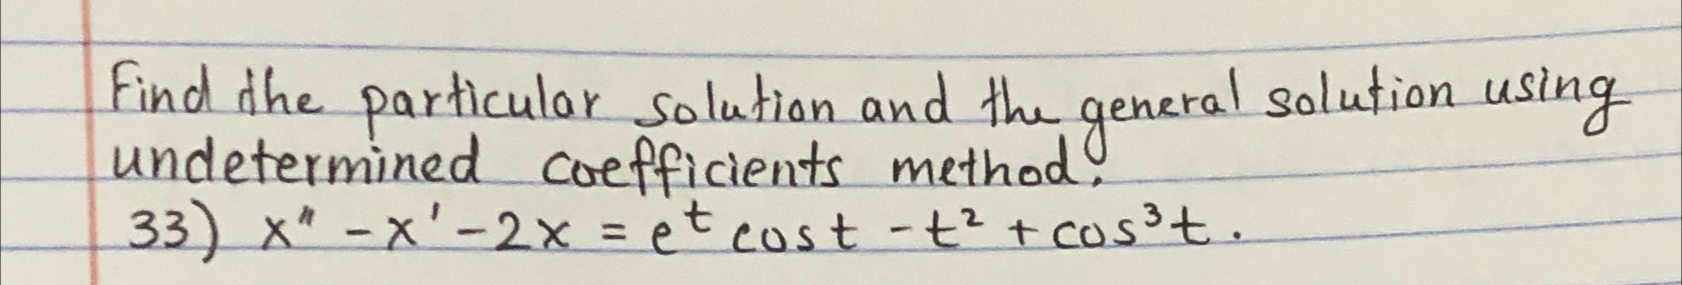 Find the particular solution and the general solution using
undetermined coefficients method.
33) x" - x' - 2x = e^t cos t - t² + cos³t.